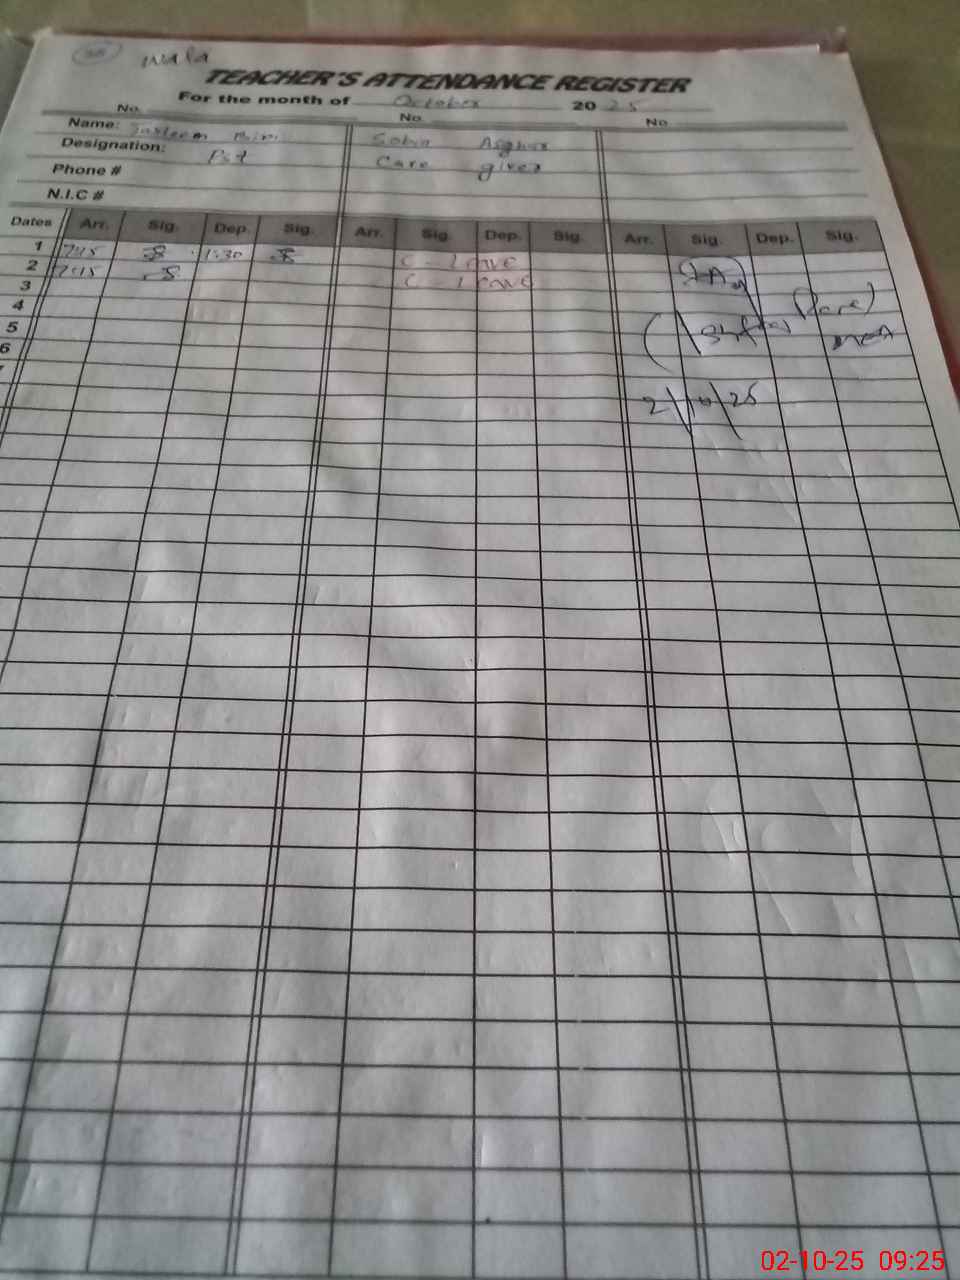 wala
TEACHER'S ATTENDANCE REGISTER
For the month of October 2025
No. No. No.
Name: Tasleem Bibi Sobia Asghar
Designation: Pst Care giver
Phone #
N.I.C #
Dates Arr. Sig. Dep. Sig. Arr. Sig. Dep. Sig. Arr. Sig. Dep. Sig.
1 7:15 1:30 C - Leave
2 7:15 C - Leave
3
4
5
6
2/10/25
02-10-25 09:25